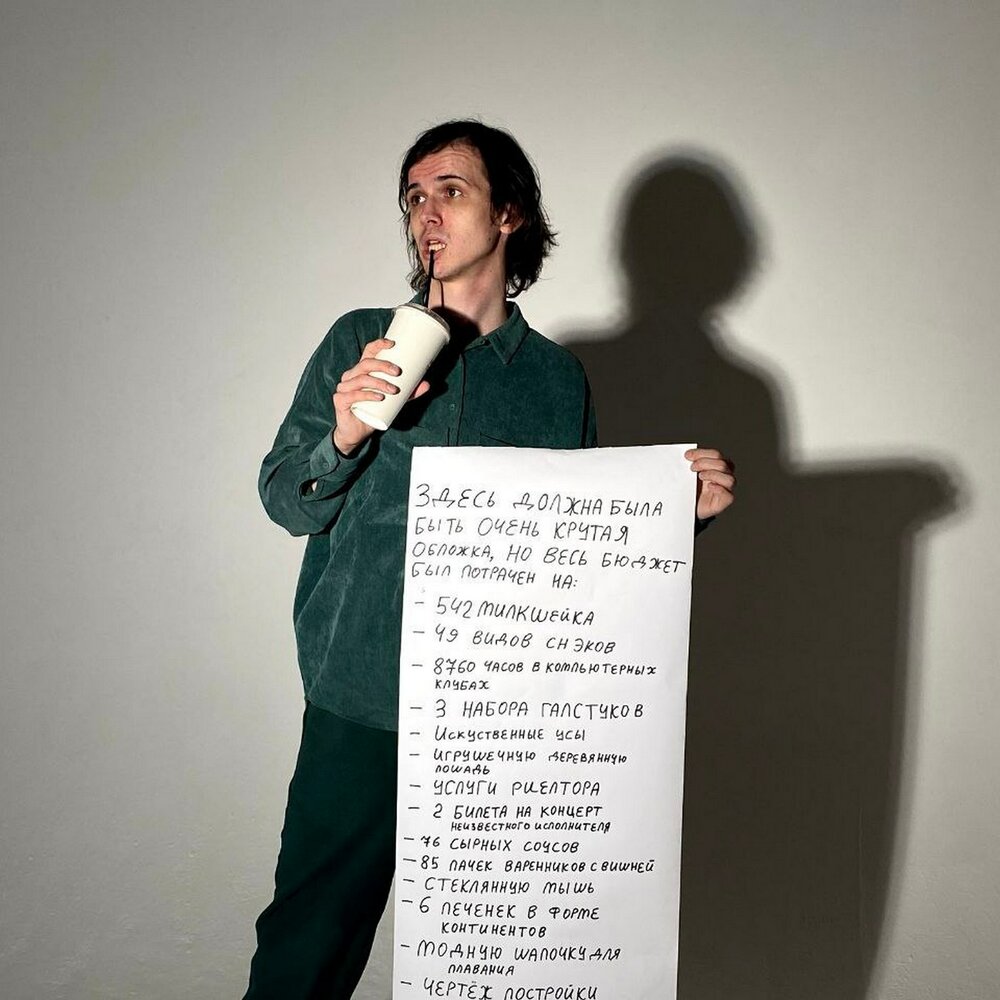 ЗДЕСЬ ДОЛЖНА БЫЛА
БЫТЬ ОЧЕНЬ КРУТАЯ
ОБЛОЖКА, НО ВЕСЬ БЮДЖЕТ
БЫЛ ПОТРАЧЕН НА:
- 542 МИЛКШЕЙКА
- 49 ВИДОВ СНЭКОВ
- 8760 ЧАСОВ В КОМПЬЮТЕРНЫХ
КЛУБАХ
- 3 НАБОРА ГАЛСТУКОВ
- ИСКУСТВЕННЫЕ УСЫ
- ИГРУШЕЧНУЮ ДЕРЕВЯННУЮ
ЛОШАДЬ
- УСЛУГИ РИЕЛТОРА
- 2 БИЛЕТА НА КОНЦЕРТ
НЕИЗВЕСТНОГО ИСПОЛНИТЕЛЯ
- 76 СЫРНЫХ СОУСОВ
- 85 ПАЧЕК ВАРЕННИКОВ С ВИШНЕЙ
- СТЕКЛЯННУЮ МЫШЬ
- 6 ПЕЧЕНЕК В ФОРМЕ
КОНТИНЕНТОВ
- МОДНУЮ ШАПОЧКУ ДЛЯ
ПЛАВАНИЯ
- ЧЕРТЁЖ ПОСТРОЙКИ